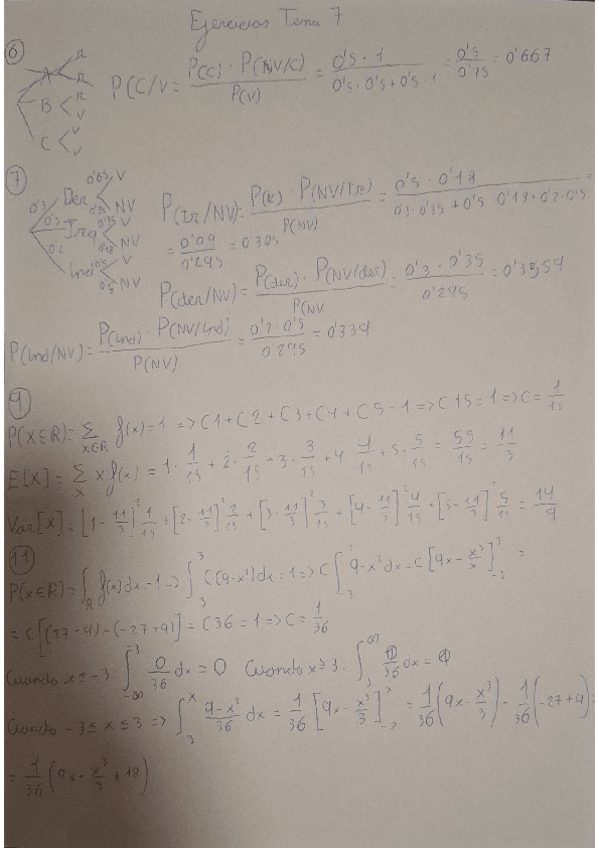 Ejercicios Tema 7
6
A R R
B R V
C V V
P(C/V = P(C) · P(NV/C) / P(V) = 0'5 · 1 / 0'5 · 0'5 + 0'5 · 1 = 0'5 / 0'75 = 0'667
7
0'3 Der 0'65 V
NV
Izq V
0'18 NV
0'2 Ind 0'5 V
0'5 NV
P(Iz/NV) = · P(NV/Iz) / P(NV) = 0'5 · 0'18 / 0'3 · 0'35 + 0'5 0'18 + 0'2 · 0'5 =
= 0'09 / 0'295 = 0'305
P(der/NV) = P(der) · P(NV/der) / P(NV = 0'3 · 0'35 / 0'295 = 0'3559
P(Ind/NV) = P(Ind) P(NV/Ind) / P(NV) = 0'2 · 0'5 / 0'295 = 0'339
9
P(X∈R) = Σ x∈R f(x) = 1 => C1 + C2 + C3 + C4 + C5 = 1 => C15 = 1 => C = 1/15
E[X] = Σ x x f(x) = 1 · 1/15 + 2 · 2/15 + 3 · 3/15 + 4 4/15 + 5 · 5/15 = 55/15 = 11/3
Var[X] = [1 - 11/3]² 1/15 + [2 - 11/3]² 2/15 + [3 - 11/3]² 3/15 + [4 - 11/3]² 4/15 + [5 - 11/3]² 5/15 = 14/9
11
P(x∈R) = ∫R f(x) dx = 1 -> ∫ C(9-x²) dx = 1 => C ∫ 9-x² dx = C [9x - x³/x] =
= C [(27-9) - (-27+9)] = C36 = 1 => C = 1/36
Cuando x ≤ -3 : ∫ 0/36 dx = 0 Cuando x ≥ 3 : ∫ dx =
Cuando -3 ≤ x ≤ 3 => ∫ 9-x²/36 dx = 1/36 [9x - x³/3] = 1/36 (9x - x³/3) - 1/36 (-27+9) =
= 1/36 (9x - x³/3 + 18)